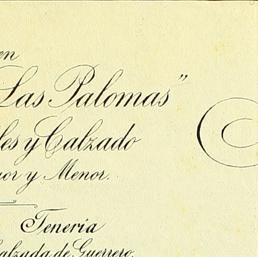 en
Las Palomas"
les y Calzado
or y Menor.
Tenería
alzada de Guerrero.